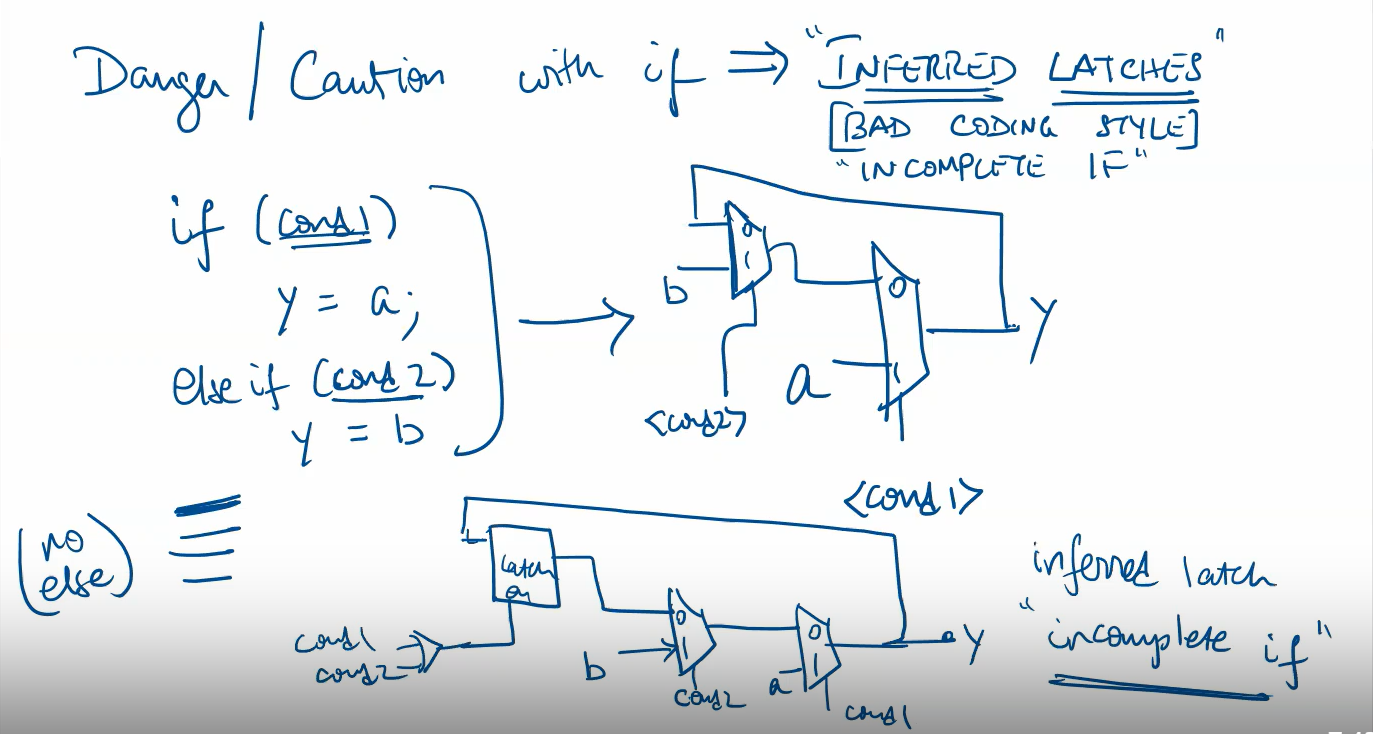 Danger / Caution with if ⇒ "INFERRED LATCHES"
[BAD CODING STYLE]
"INCOMPLETE IF"
if (cond1)
y = a;
else if (cond2)
y = b
(no else)
0
1
b
<cond2>
0
1
a
y
<cond1>
latch
en
cond1
cond2
0
1
b
cond2
0
1
a
cond1
y
inferred latch
"incomplete if"